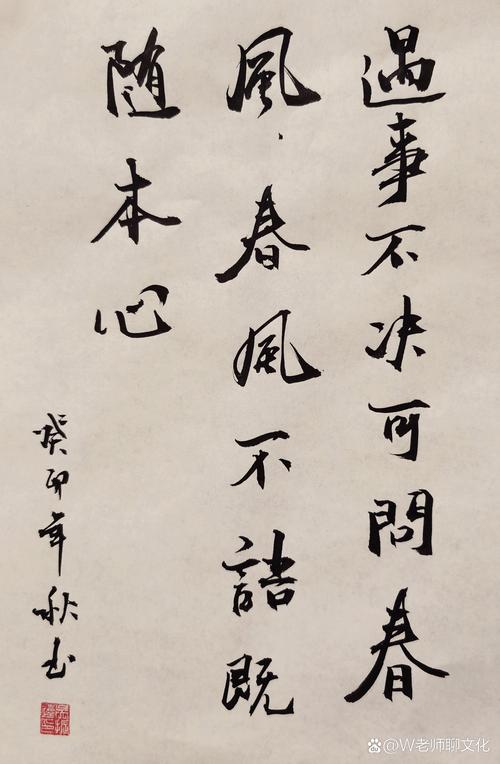 遇事不决可問春
風春風不語既
随本心
癸卯年秋书
@W老师聊文化